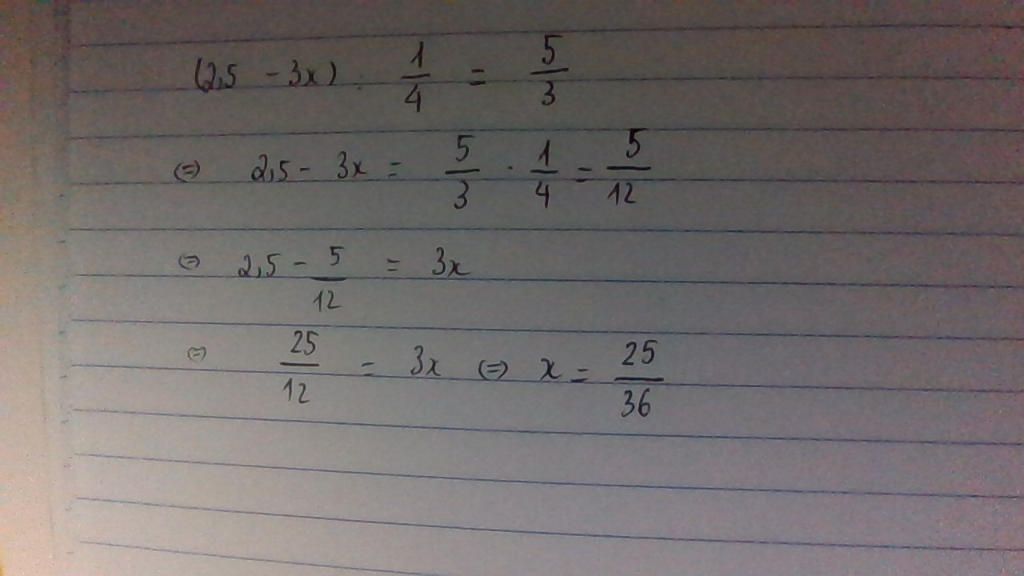 (2,5 - 3x) : 1/4 = 5/3
(=) 2,5 - 3x = 5/3 . 1/4 = 5/12
(=) 2,5 - 5/12 = 3x
(=) 25/12 = 3x (=) x = 25/36